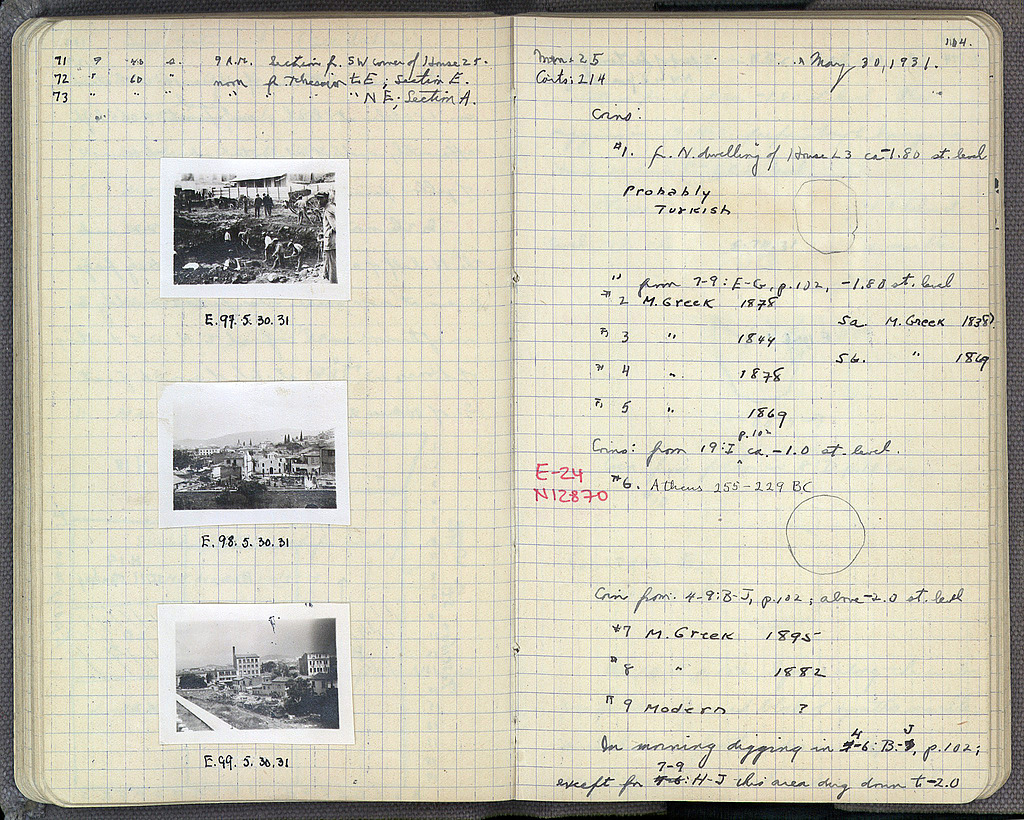 71 9 40 s. 9 A.M. Section fr. SW corner of House 25.
72 " 60 " noon fr. Theseion to E; Section E.
73 " " " " " " " NE; Section A.
E.97. 5.30.31
E.98. 5.30.31
E.99. 5.30.31
104.
Men: 25 May 30, 1931.
Carts: 214
Coins:
#1. fr. N. dwelling of House 23 ca -1.80 st. level
Probably
Turkish
" from 7-9: E-G, p.102, -1.80 st. level
#2 M. Greek 1878
5a. M. Greek 1838?
#3 " 1844
5b. " 1869
#4 " 1878
#5 " 1869
p.102
Coins: from 19:I ca. -1.0 st. level.
E-24
N12870
#6. Athens 255-229 BC
Coin from: 4-9: B-J, p.102; above -2.0 st. level
#7 M. Greek 1895
#8 " 1882
#9 Modern ?
4 J
In morning digging in -6: B-, p.102;
7-9
except for : H-J this area dug down to -2.0